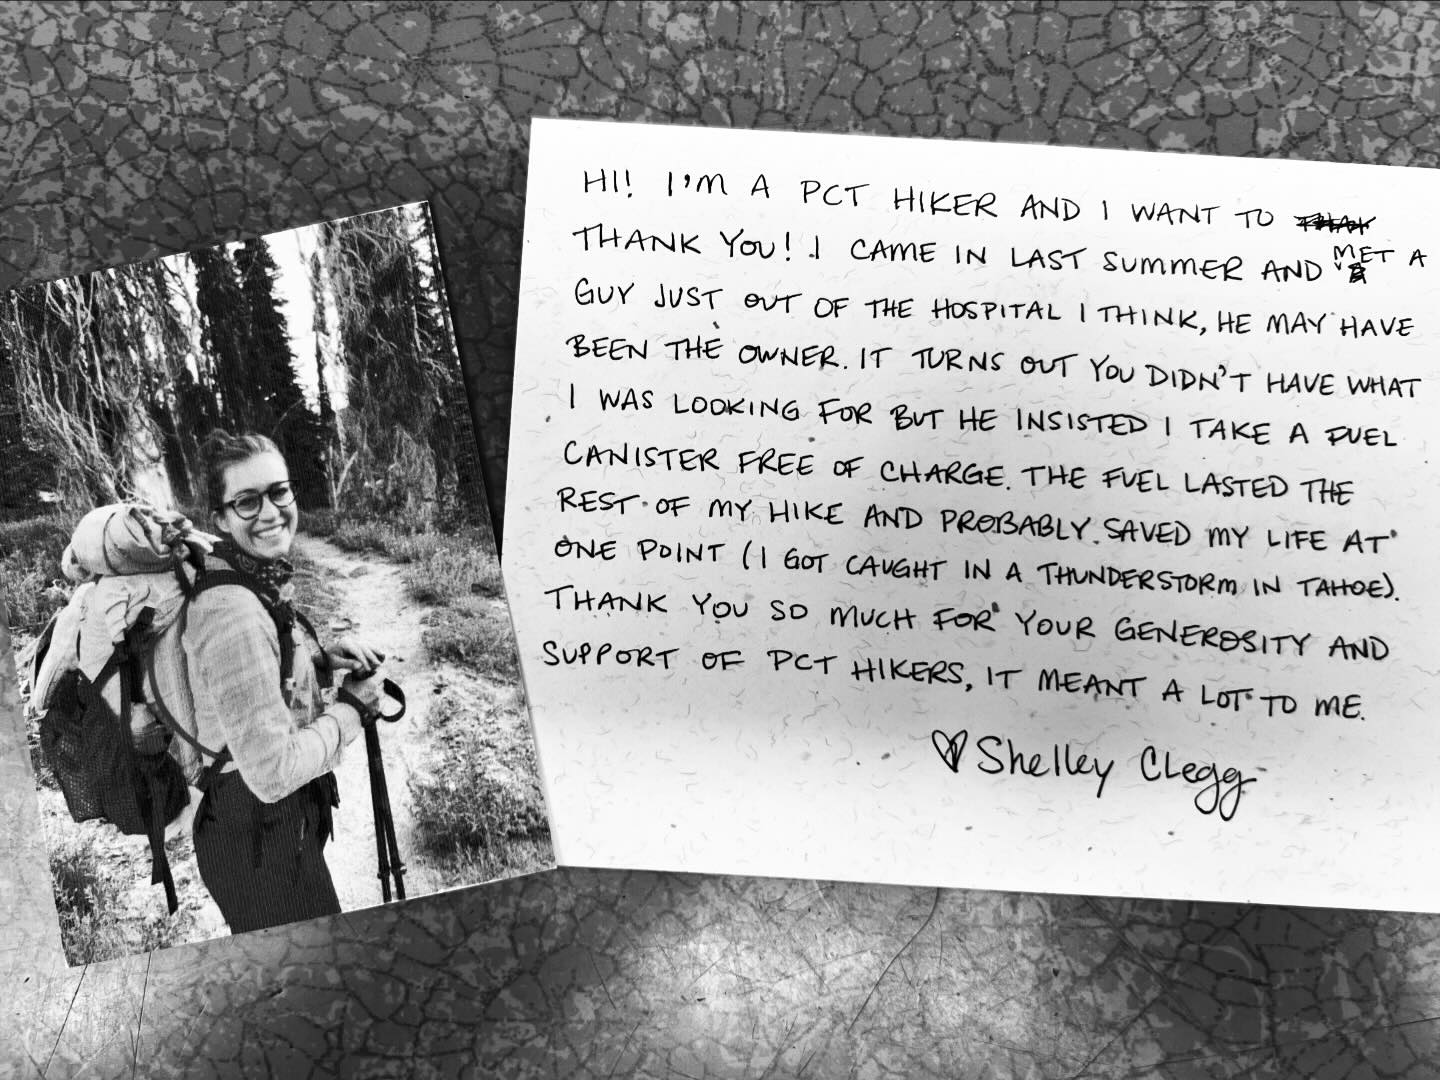 HI! I'M A PCT HIKER AND I WANT TO
THANK YOU! I CAME IN LAST SUMMER AND MET A
GUY JUST OUT OF THE HOSPITAL I THINK, HE MAY HAVE
BEEN THE OWNER. IT TURNS OUT YOU DIDN'T HAVE WHAT
I WAS LOOKING FOR BUT HE INSISTED I TAKE A FUEL
CANISTER FREE OF CHARGE. THE FUEL LASTED THE
REST OF MY HIKE AND PROBABLY SAVED MY LIFE AT
ONE POINT (I GOT CAUGHT IN A THUNDERSTORM IN TAHOE).
THANK YOU SO MUCH FOR YOUR GENEROSITY AND
SUPPORT OF PCT HIKERS, IT MEANT A LOT TO ME.
♡ Shelley Clegg